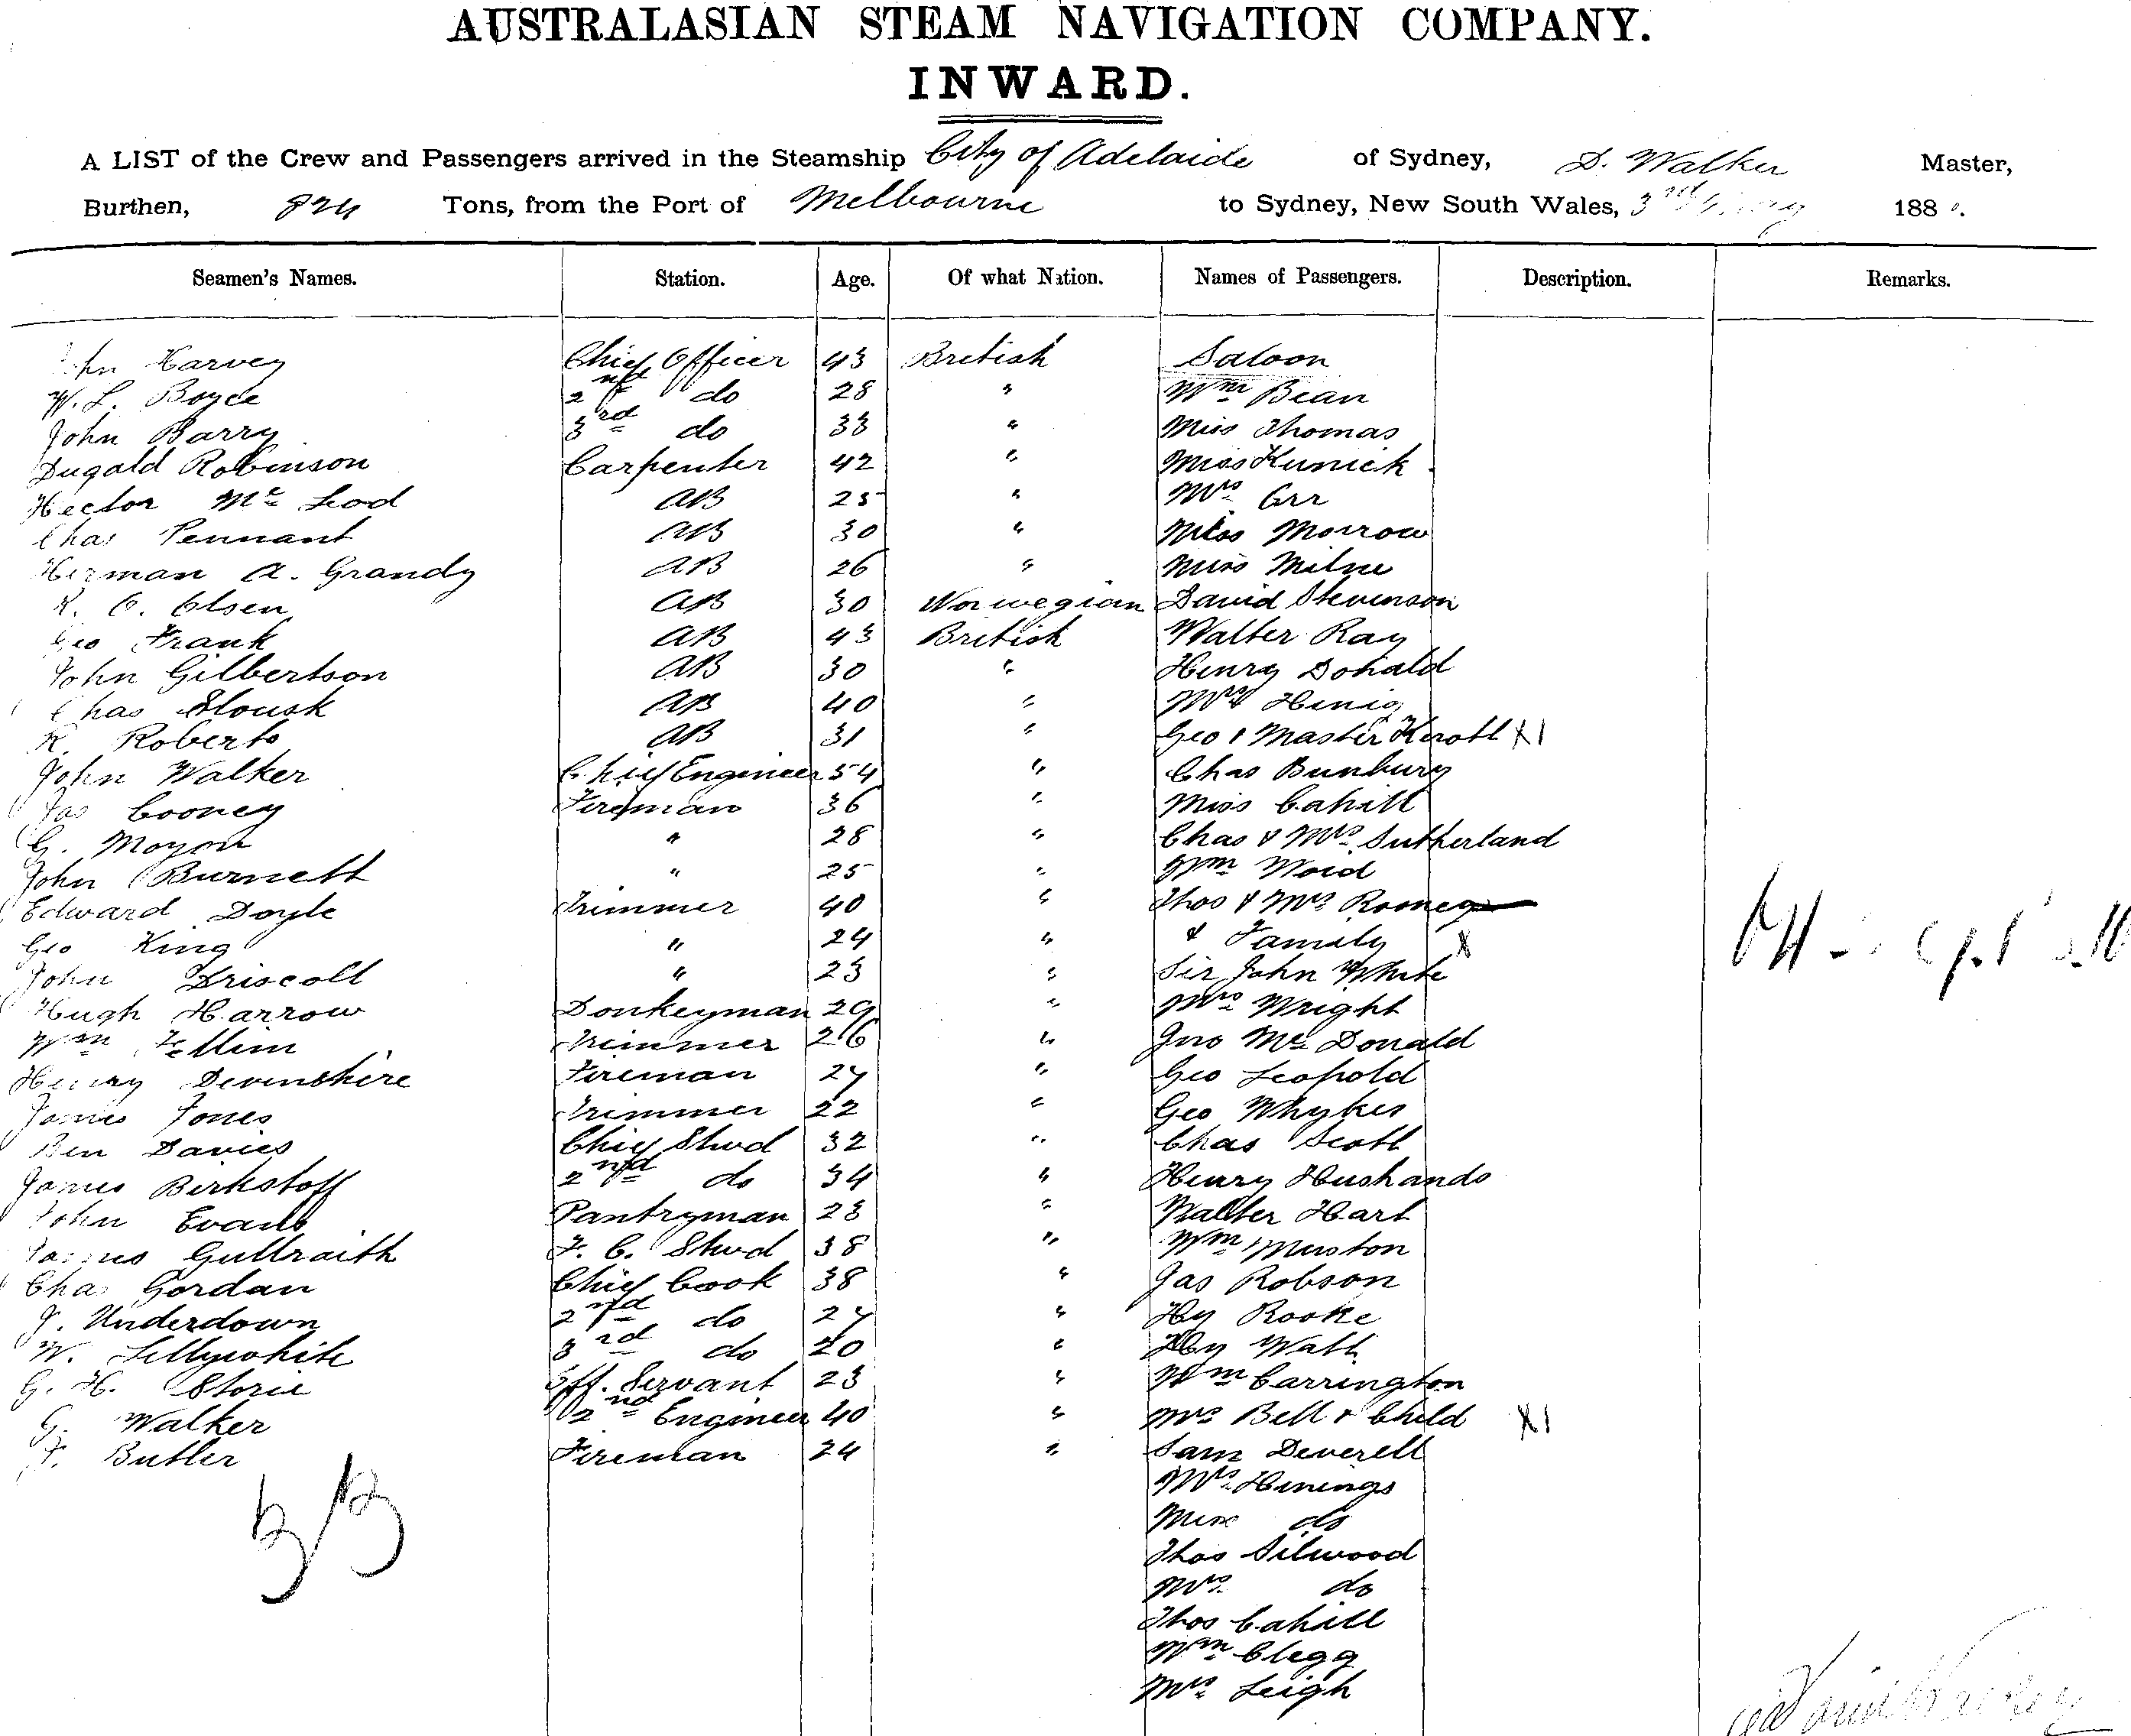 AUSTRALASIAN STEAM NAVIGATION COMPANY.
INWARD.
A LIST of the Crew and Passengers arrived in the Steamship City of Adelaide of Sydney, D. Walker Master,
Burthen, 824 Tons, from the Port of Melbourne to Sydney, New South Wales, 3rd 188
Seamen's Names. Station. Age. Of what Nation. Names of Passengers. Description. Remarks.
John Harvey Chief Officer 43 British Saloon
W. L. Boyce 2nd do 28 " Wm Bean
John Barry 3rd do 33 " Miss Thomas
Dugald Robinson Carpenter 42 " Miss Kunick
Hector Mc Leod AB 25 " Mrs Orr
Chas Pennant AB 30 " Miss Morrow
Herman A. Grandy AB 26 " Miss Milne
K. O. Olsen AB 30 Norwegian David Stevenson
Geo Frank AB 43 British Walter Ray
John Gilbertson AB 30 " Henry Donald
Chas AB 40 " Mrs
R. Roberts AB 31 " Geo & Master X1
John Walker Chief Engineer 54 " Chas Bunbury
Jas Cooney Fireman 36 " Miss Cahill
G. Moyon " 28 " Chas & Mrs Sutherland
John Burnett " 25 " Wm
Edward Doyle Trimmer 40 " Thos & Mrs Rooney
Geo King " 24 " & Family X
John Driscoll " 23 " Sir John White
Hugh Harrow Donkeyman 29 " Mrs Wright
Wm Trimmer 26 " Jno Mc Donald
Henry Devenshire Fireman 27 " Geo Leopold
James Jones Trimmer 22 " Geo Whykes
Ben Davies Chief Stwd 32 " Chas Scott
James Birkstoff 2nd do 34 " Henry Hushands
John Evans Pantryman 23 " Walter Hart
James Gullraith F. C. Stwd 38 " Wm Muston
Chas Gordan Chief Cook 38 " Jas Robson
J. Underdown 2nd do 27 " Hy Rooke
W. Lillywhite 3rd do 20 " Hy Watt
G. H. Storie Off. Servant 23 " Wm Carrington
G. Walker 2nd Engineer 40 " Mrs Bell & Child X1
F. Butler Fireman 24 " Sam Deverell
Mrs Hinings
Miss do
Thos Silwood
Mrs do
Thos Cahill
Wm Clegg
Mrs Leigh